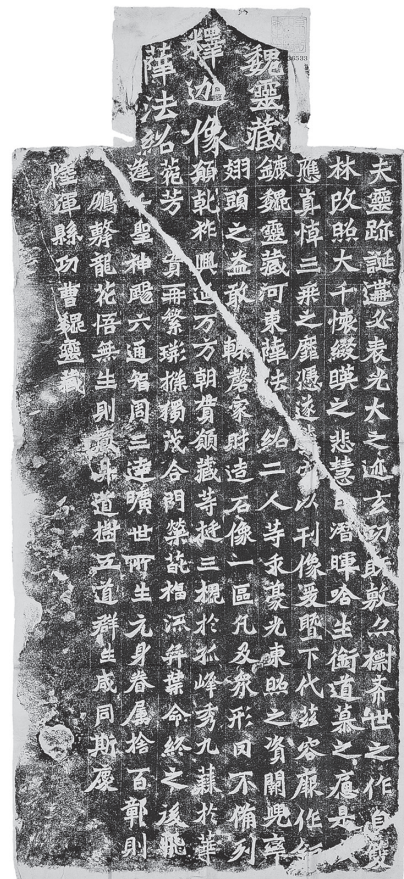 魏靈藏
釋迦像
薛法紹
夫靈跡誕遘必表光大之迹玄功既敷亦標希世之作自雙
林改照大千懷綴暎之悲慧日潛暉啥生銜道慕之痛是
應真悼三乘之靡憑遂以刊像爰暨下代茲容厥作鉅
鏕魏靈藏河東薛法紹二人等求豪光東照之資闕兜率
翅頭之益敢輒磬家財造石像一區凡及眾形罔不備列
願乾祚興延万方朝貫願藏等挺三槐於孤峰秀九蕀於華
苑芳實再繁荊條獨茂合門榮葩福流奕葉命終之後飛
逢千聖神颺六通智周三達曠世所生元身眷屬捨百鄣則
鵬擊龍花悟無生則鳳昇道樹五道群生咸同斯慶
陸渾縣功曹魏靈藏